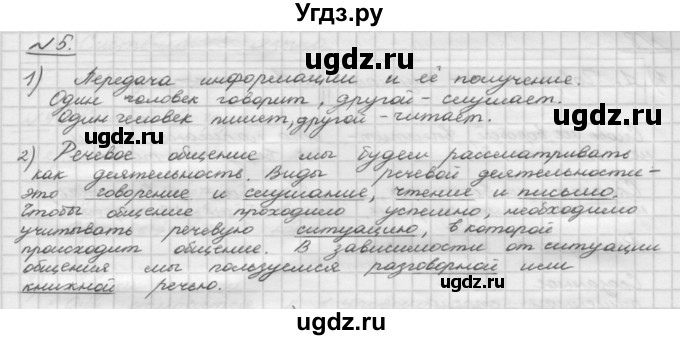 Угдз.ру
№5.
1) Передача информации и её получение.
Один человек говорит, другой – слушает.
Один человек пишет, другой – читает.
2) Речевое общение мы будем рассматривать
как деятельность. Виды речевой деятельности –
это говорение и слушание, чтение и письмо.
Чтобы общение проходило успешно, необходимо
учитывать речевую ситуацию, в которой
происходит общение. В зависимости от ситуации
общения мы пользуемся разговорной или
книжной речью.
ugdz.ru
ugdz.ru
ugdz.ru
ugdz.ru
ugdz.ru
ugdz.ru
ugdz.ru
ugdz.ru